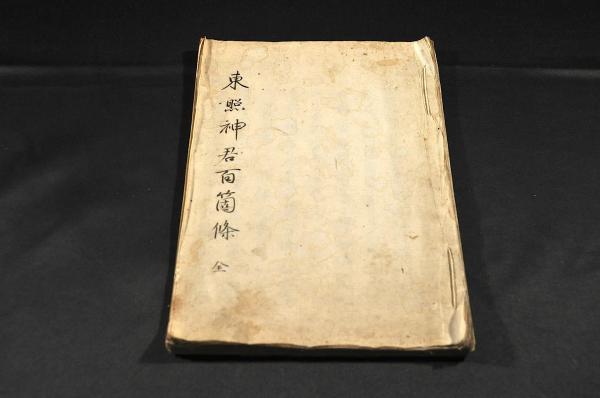 東照神君百箇條 全